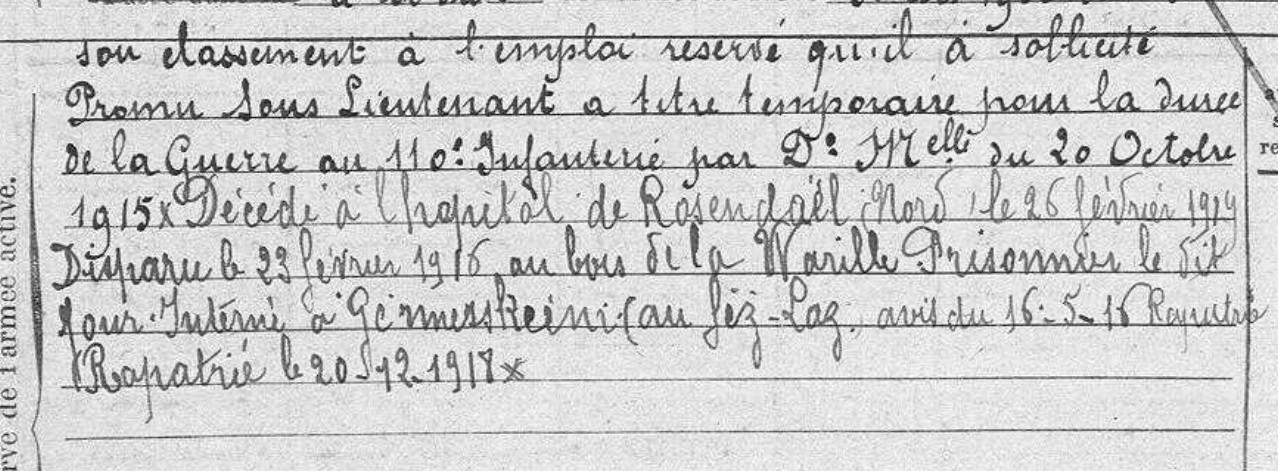 son classement à l'emploi reservé qu'il à sollicité
Promu Sous Lieutenant a titre temporaire pour la duree
de la Guerre au 110e Infanterie par Dn Melle du 20 Octobre
1915 x Décédé à l'hopital de Rosendaël (Nord) le 26 février 1919
Disparu le 23 février 1916 au bois de la Waville Prisonnier le dit
jour. Interné à (au avis du 16-5-16
Rapatrié le 20-12-1918 x
rve de l'armée active.
re